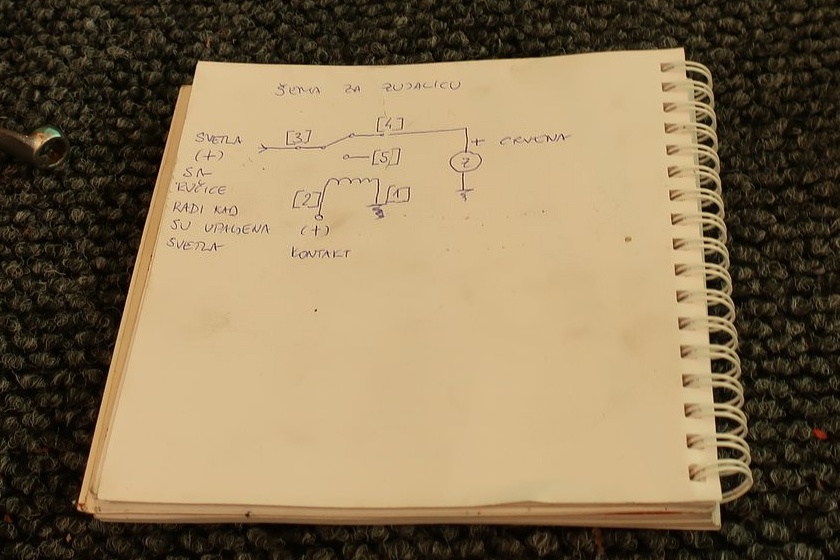 ŠEMA ZA ZUJALICU
SVETLA
(+)
SA
RUČICE
RADI KAD
SU UPALJENA
SVETLA
[3]
[4]
[5]
[2]
[1]
(+)
KONTAKT
+ CRVENA
Z